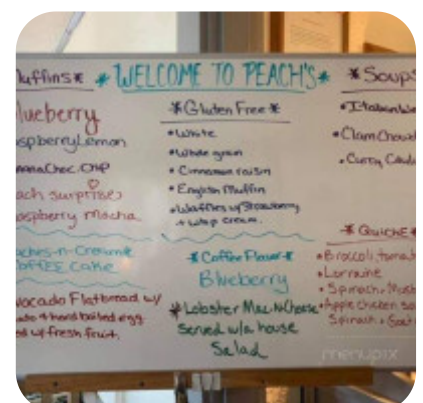 uffins* *WELCOME TO PEACH'S* *Soups
lueberry
spberryLemon
Choc. CHP
ach surprise
aspberry mocha
aches-n-Cream
OFFEE CAKE
vocado Flatbread w/
hard boiled egg
w/ fresh fruit.
*Gluten Free*
• White
• Whole grain
• Cinnamon raisin
• English Muffin
• Waffles w/ Strawberry
+ whip cream.
*Coffee Flavor*
Blueberry
*Lobster Mac-N-Cheese
Served w/a house
Salad
• Italian We
• Clam Chowd
• Curry
* QUICHE
• Broccoli tomat
• Lorraine
• Spinach, Mush
• Apple Chicken Sa
Spinach + Goat
menupix